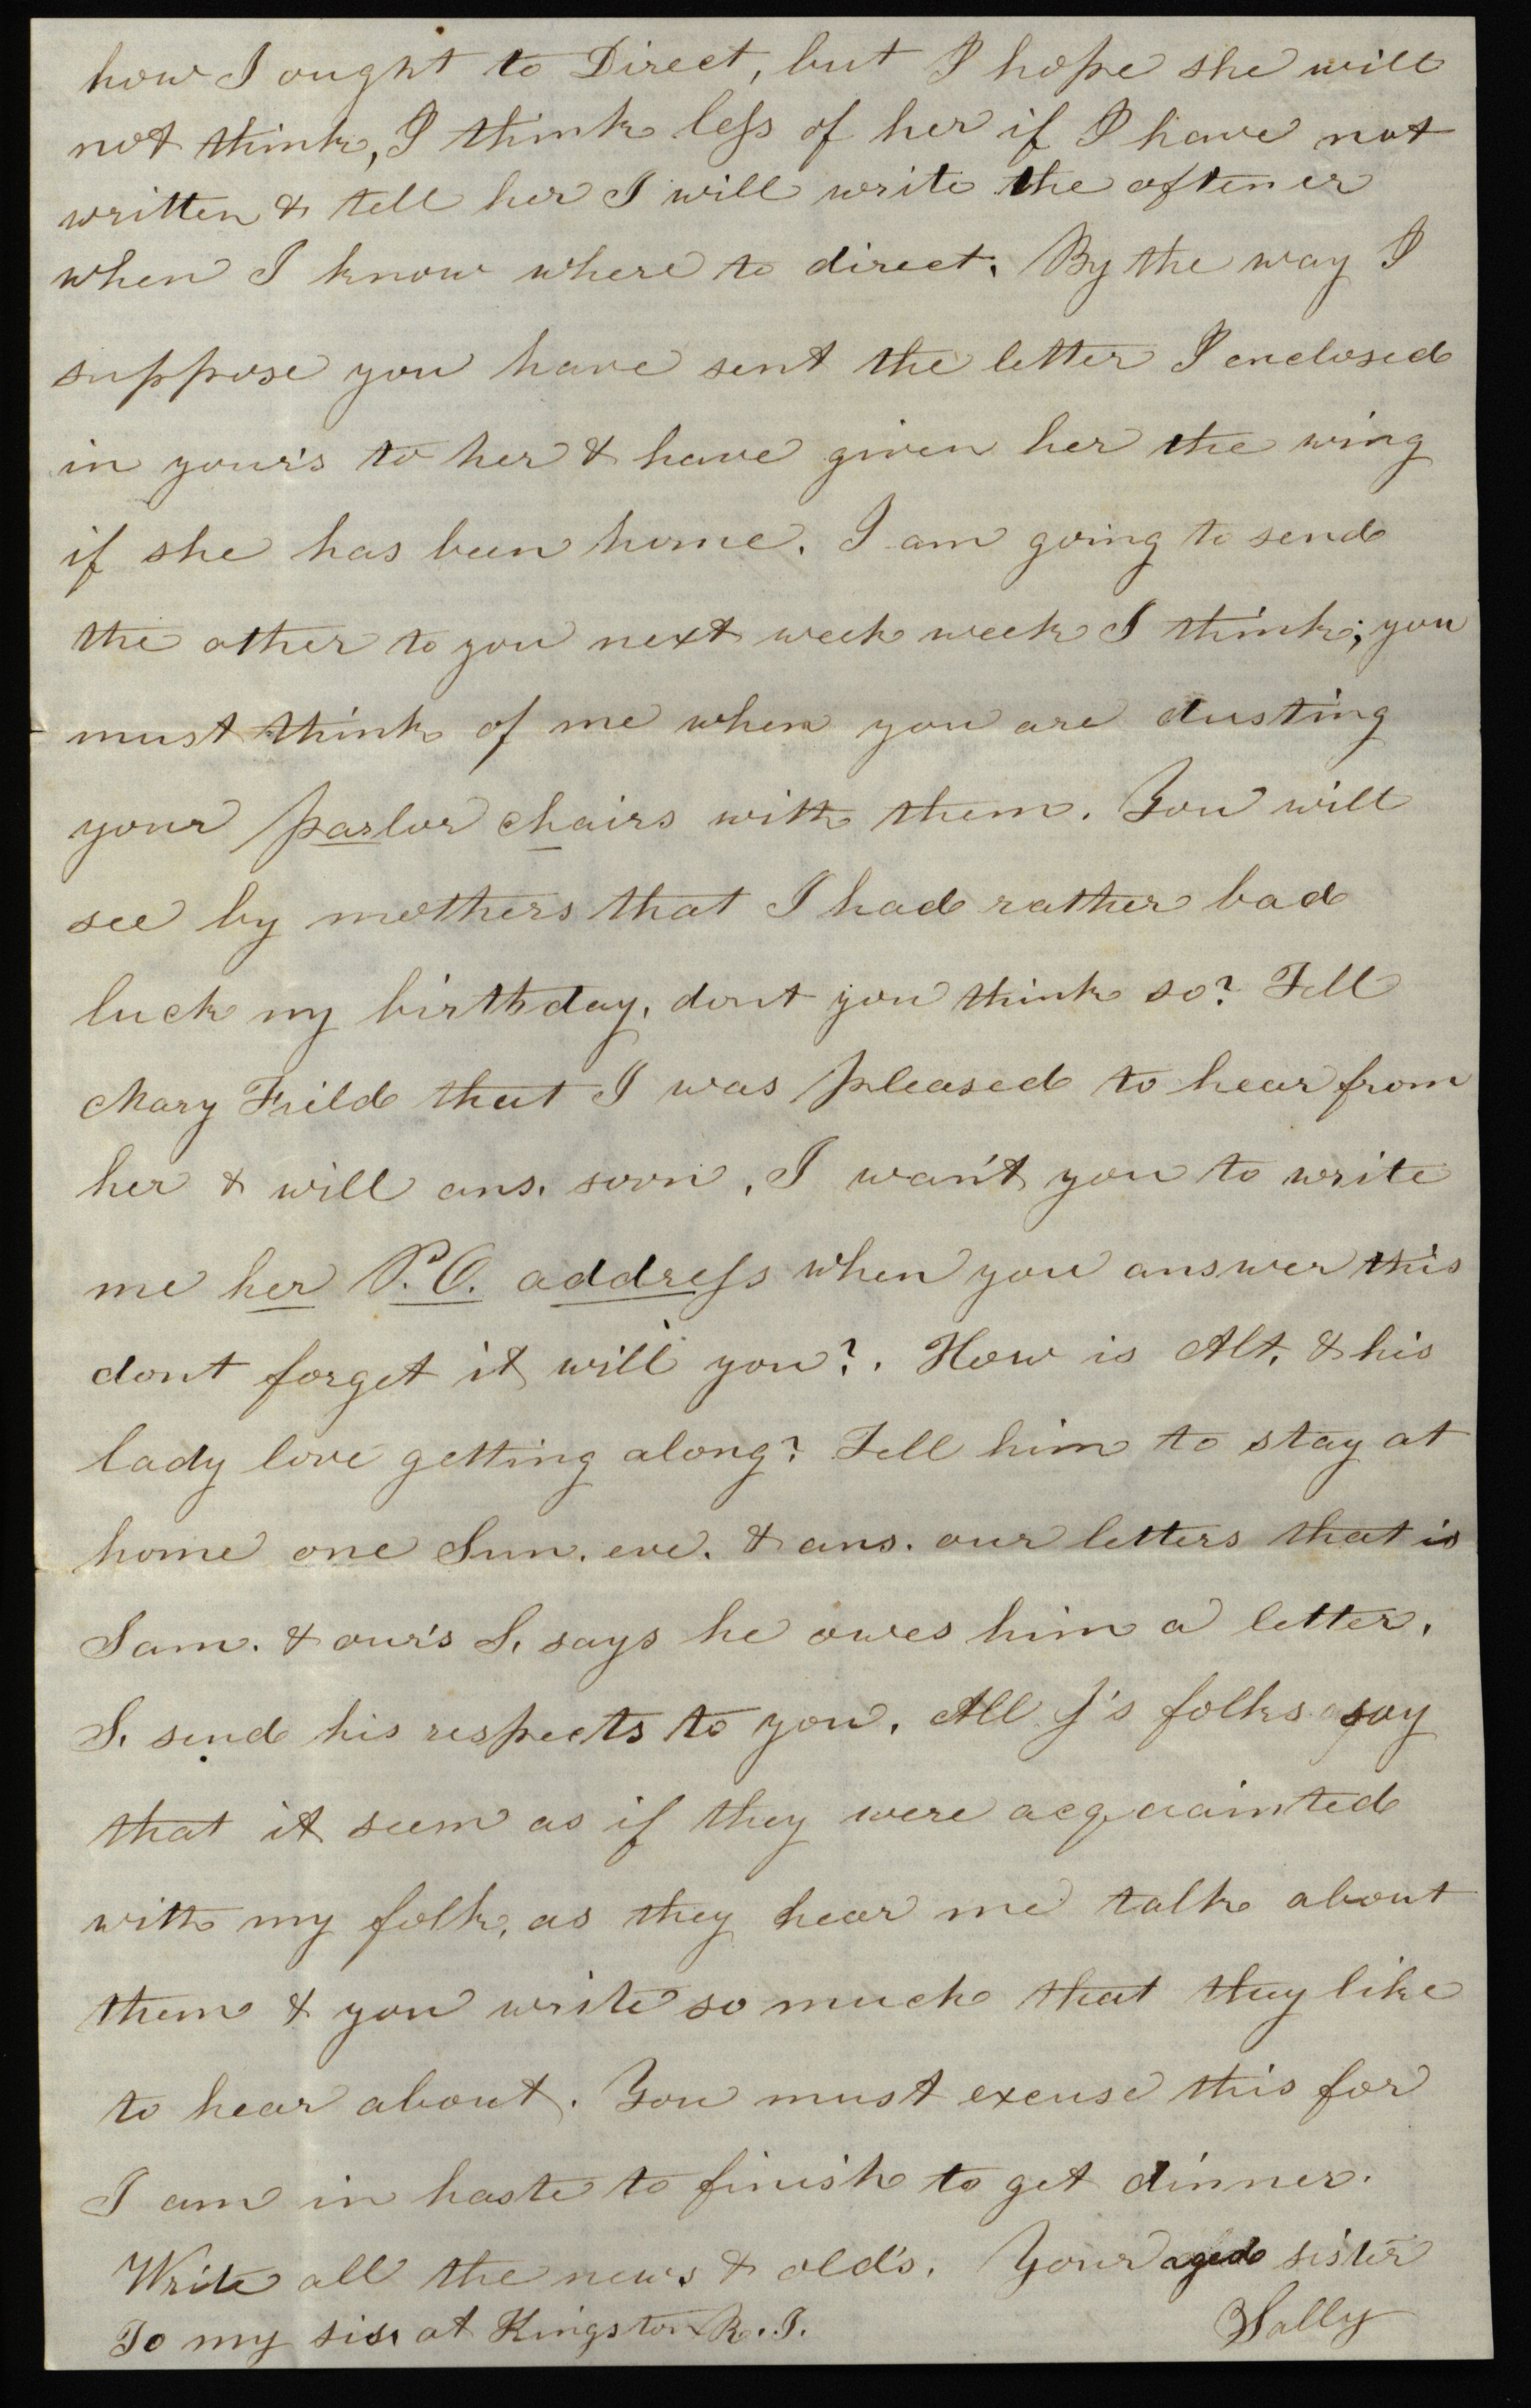 how I ought to Direct, but I hope she will
not think, I think less of her if I have not
written & tell her I will write the oftener
when I know where to direct. By the way I
suppose you have sent the letter I enclosed
in your's to her & have given her the wing
if she has been home. I am going to send
the other to you next week week I think; you
must think of me when you are dusting
your parlor chairs with them. You will
see by mothers that I had rather bad
luck my birthday, dont you think so? Tell
Mary Feild that I was pleased to hear from
her & will ans. soon, I wan't you to write
me her P.O. address when you answer this
dont forget it will you?. How is Alt. & his
lady love getting along? Tell him to stay at
home one Sun. eve. & ans. our letters that is
Sam. & our's S. says he owes him a letter.
S. send his respects to you. All J's folks say
that it seem as if they were acquainted
with my folk, as they hear me talk about
them & you write so much that they like
to hear about. You must excuse this for
I am in haste to finish to get dinner.
Write all the news & old's. Your aged sister
To my sis. at Kingston R.I. Sally